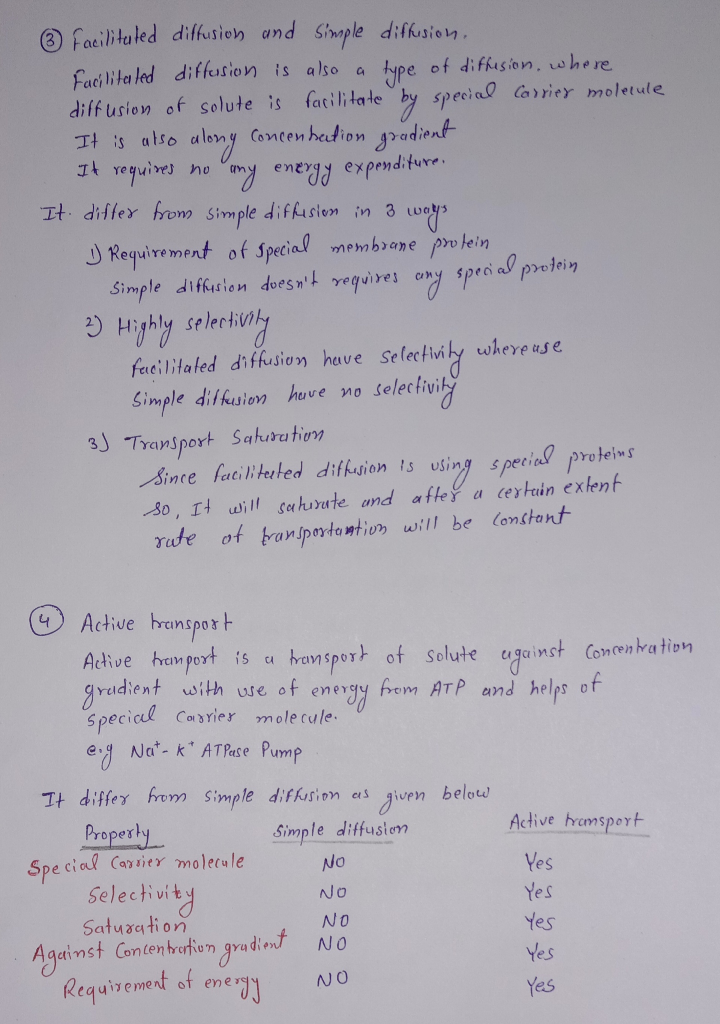 ③ Facilitated diffusion and Simple diffusion.
Facilitated diffusion is also a type of diffusion. where
diffusion of solute is facilitate by special Carrier molecule
It is also along Concentration gradient
It requires no any energy expenditure.
It. differ from simple diffusion in 3 ways
1) Requirement of special membrane protein
Simple diffusion doesn't requires any special protein
2) Highly selectivity
facilitated diffusion have selectivity whereuse
Simple diffusion have no selectivity
3) Transport Saturation
Since facilitated diffusion is using special proteins
So, It will saturate and after a certain extent
rate of transportantion will be Constant
④ Active transport
Active tranport is a transport of solute against Concentration
gradient with use of energy from ATP and helps of
special Carrier molecule.
e.g Na⁺- K⁺ ATPase Pump
It differ from simple diffusion as given below
Property Simple diffusion Active transport
Special Carrier molecule NO Yes
Selectivity NO Yes
Saturation NO Yes
Against Concentration gradient NO Yes
Requirement of energy NO Yes